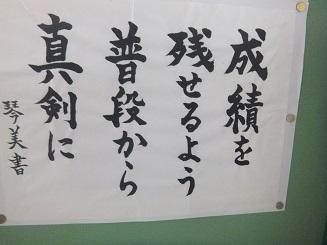 成績を
残せるよう
普段から
真剣に
琴美書